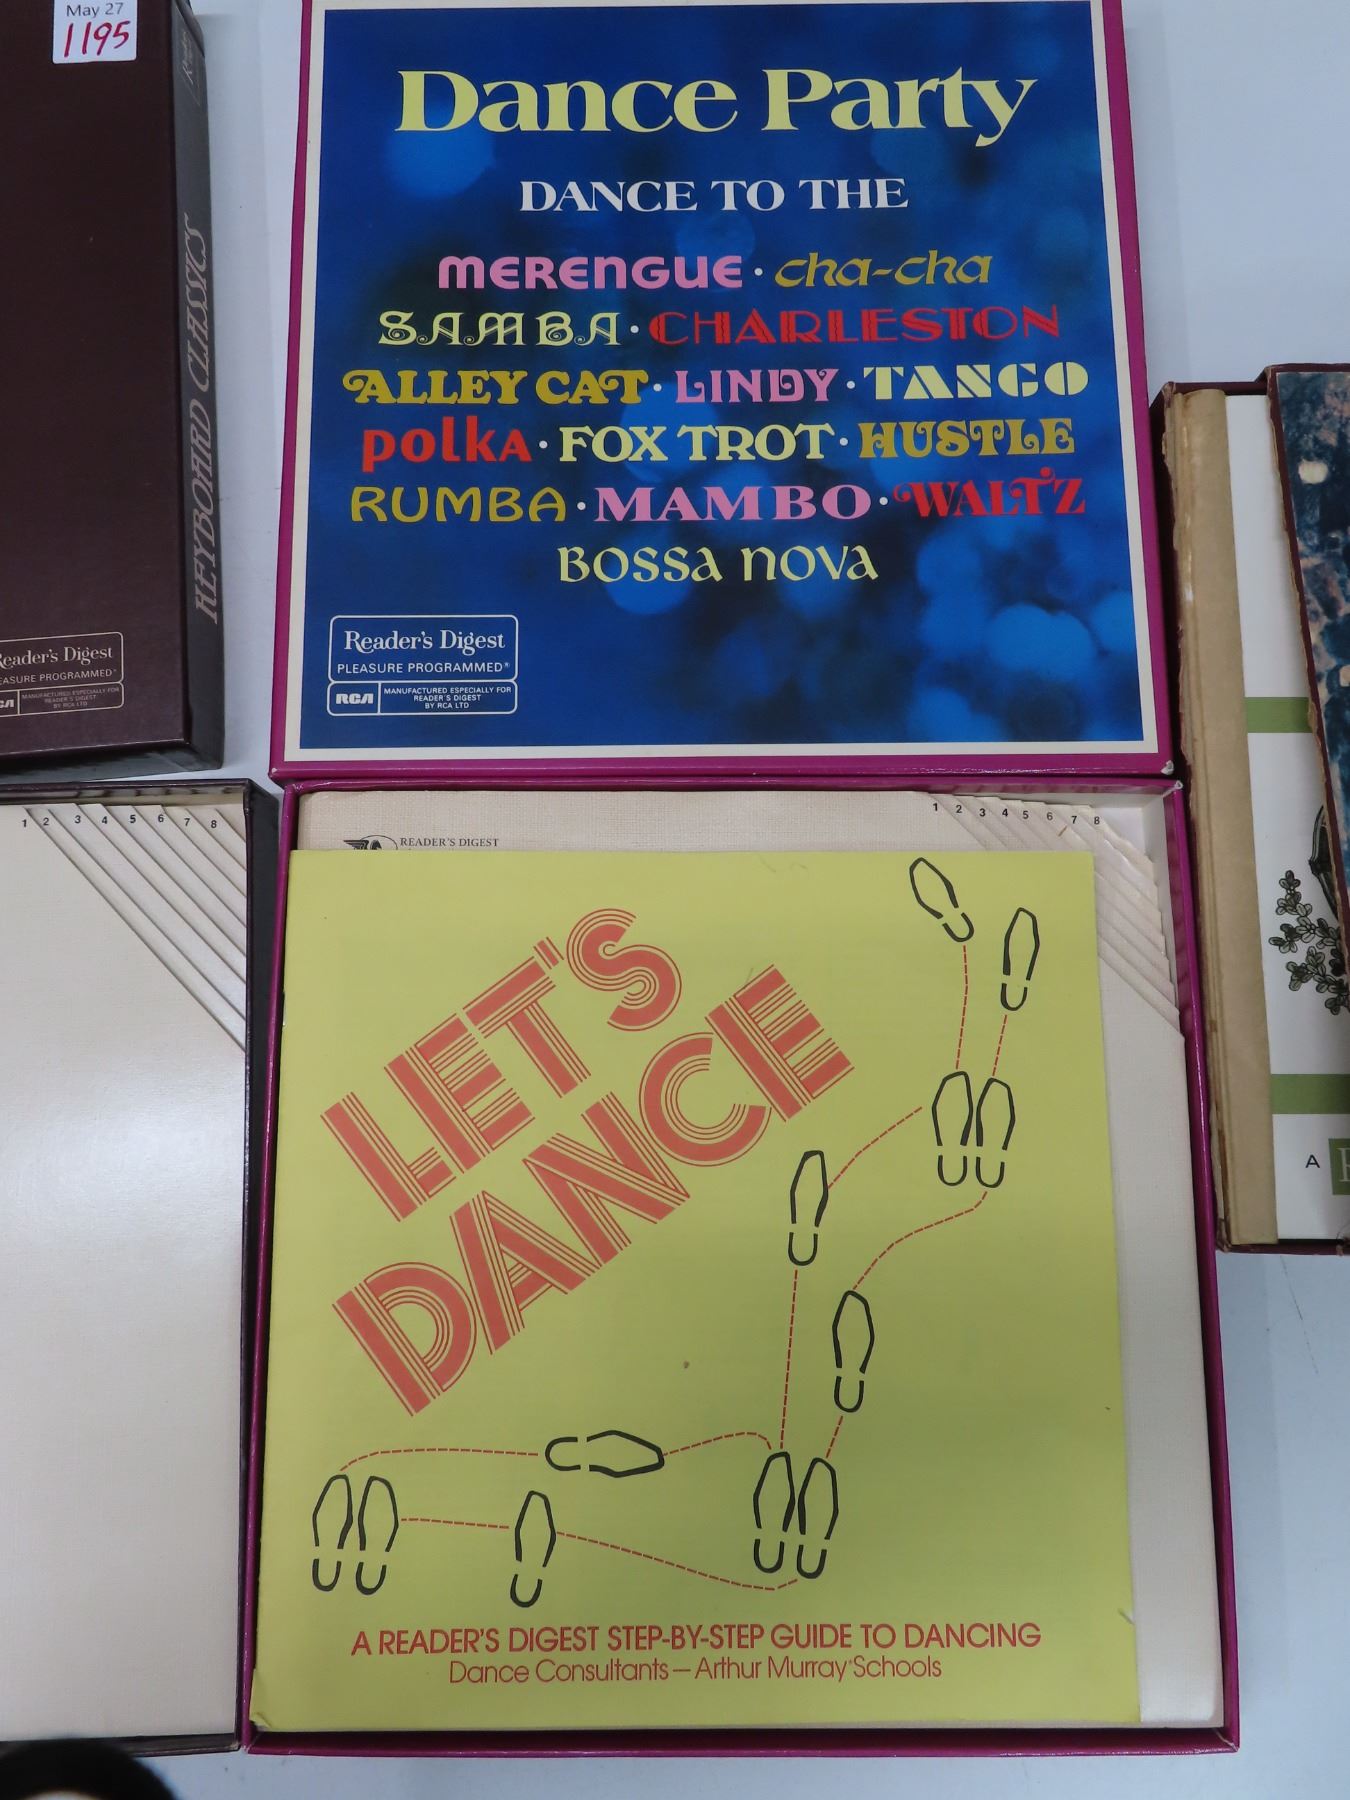 May 27
1195
KEYBOARD CLASSICS
Reader's Digest
MANUFACTURED ESPECIALLY FOR
READER'S DIGEST
BY RCA LTD
Dance Party
DANCE TO THE
MERENGUE · cha-cha
SAMBA · CHARLESTON
ALLEY CAT · LINDY · TANGO
polka · FOX TROT · HUSTLE
RUMBA · MAMBO · WALTZ
BOSSA NOVA
Reader's Digest
PLEASURE PROGRAMMED®
RCA MANUFACTURED ESPECIALLY FOR
READER'S DIGEST
BY RCA LTD
1 2 3 4 5 6 7 8
READER'S DIGEST
1 2 3 4 5 6 7 8
LET'S
DANCE
A READER'S DIGEST STEP-BY-STEP GUIDE TO DANCING
Dance Consultants — Arthur Murray® Schools
A